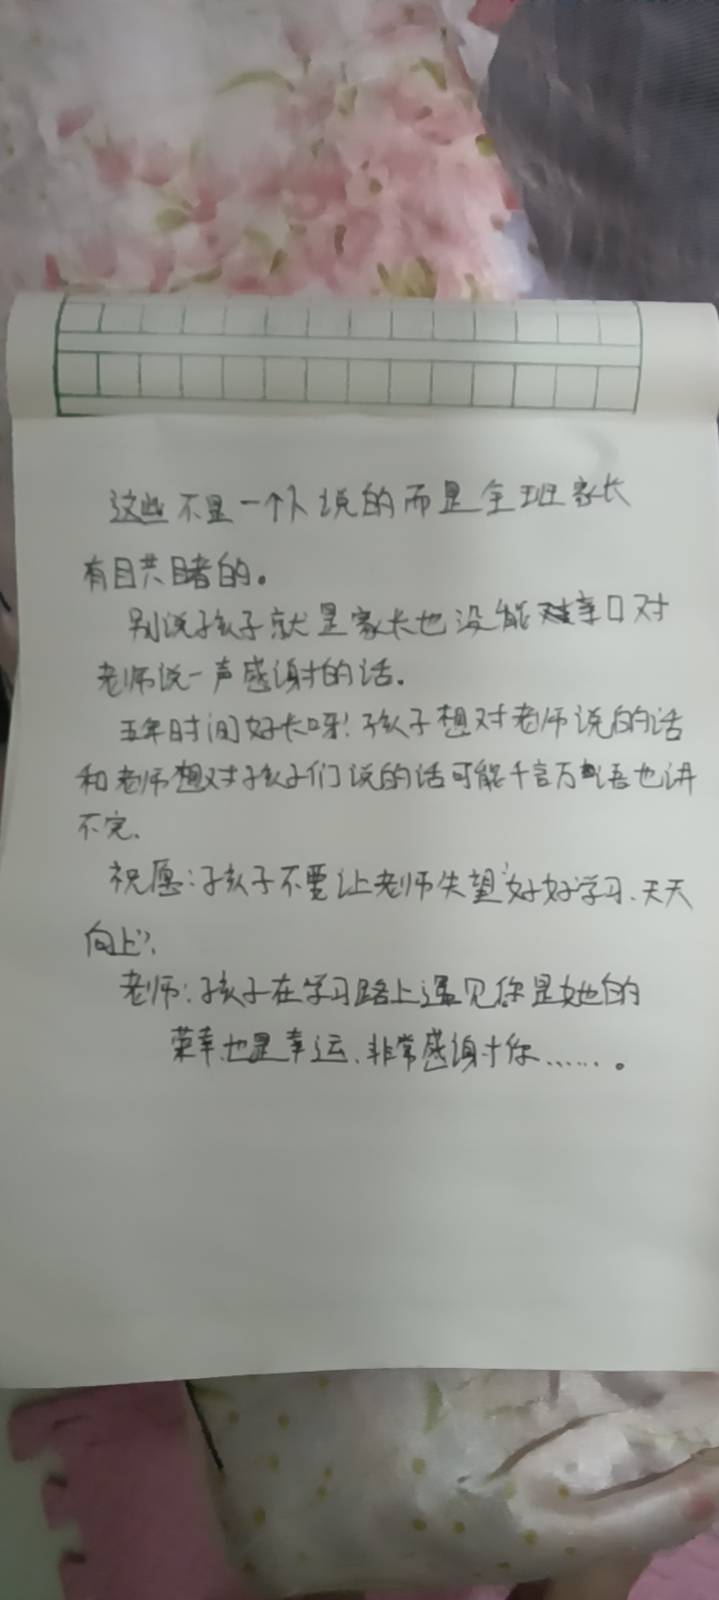 这些不是一个人说的而是全班家长
有目共睹的。
别说孩子就是家长也没能亲口对
老师说一声感谢的话。
五年时间好长呀!孩子想对老师说的话
和老师想对孩子们说的话可能千言万语也讲
不完、
祝愿:孩子不要让老师失望“好好学习、天天
向上”、
老师:孩子在学习路上遇见你是她的
荣幸、也是幸运、非常感谢你……。